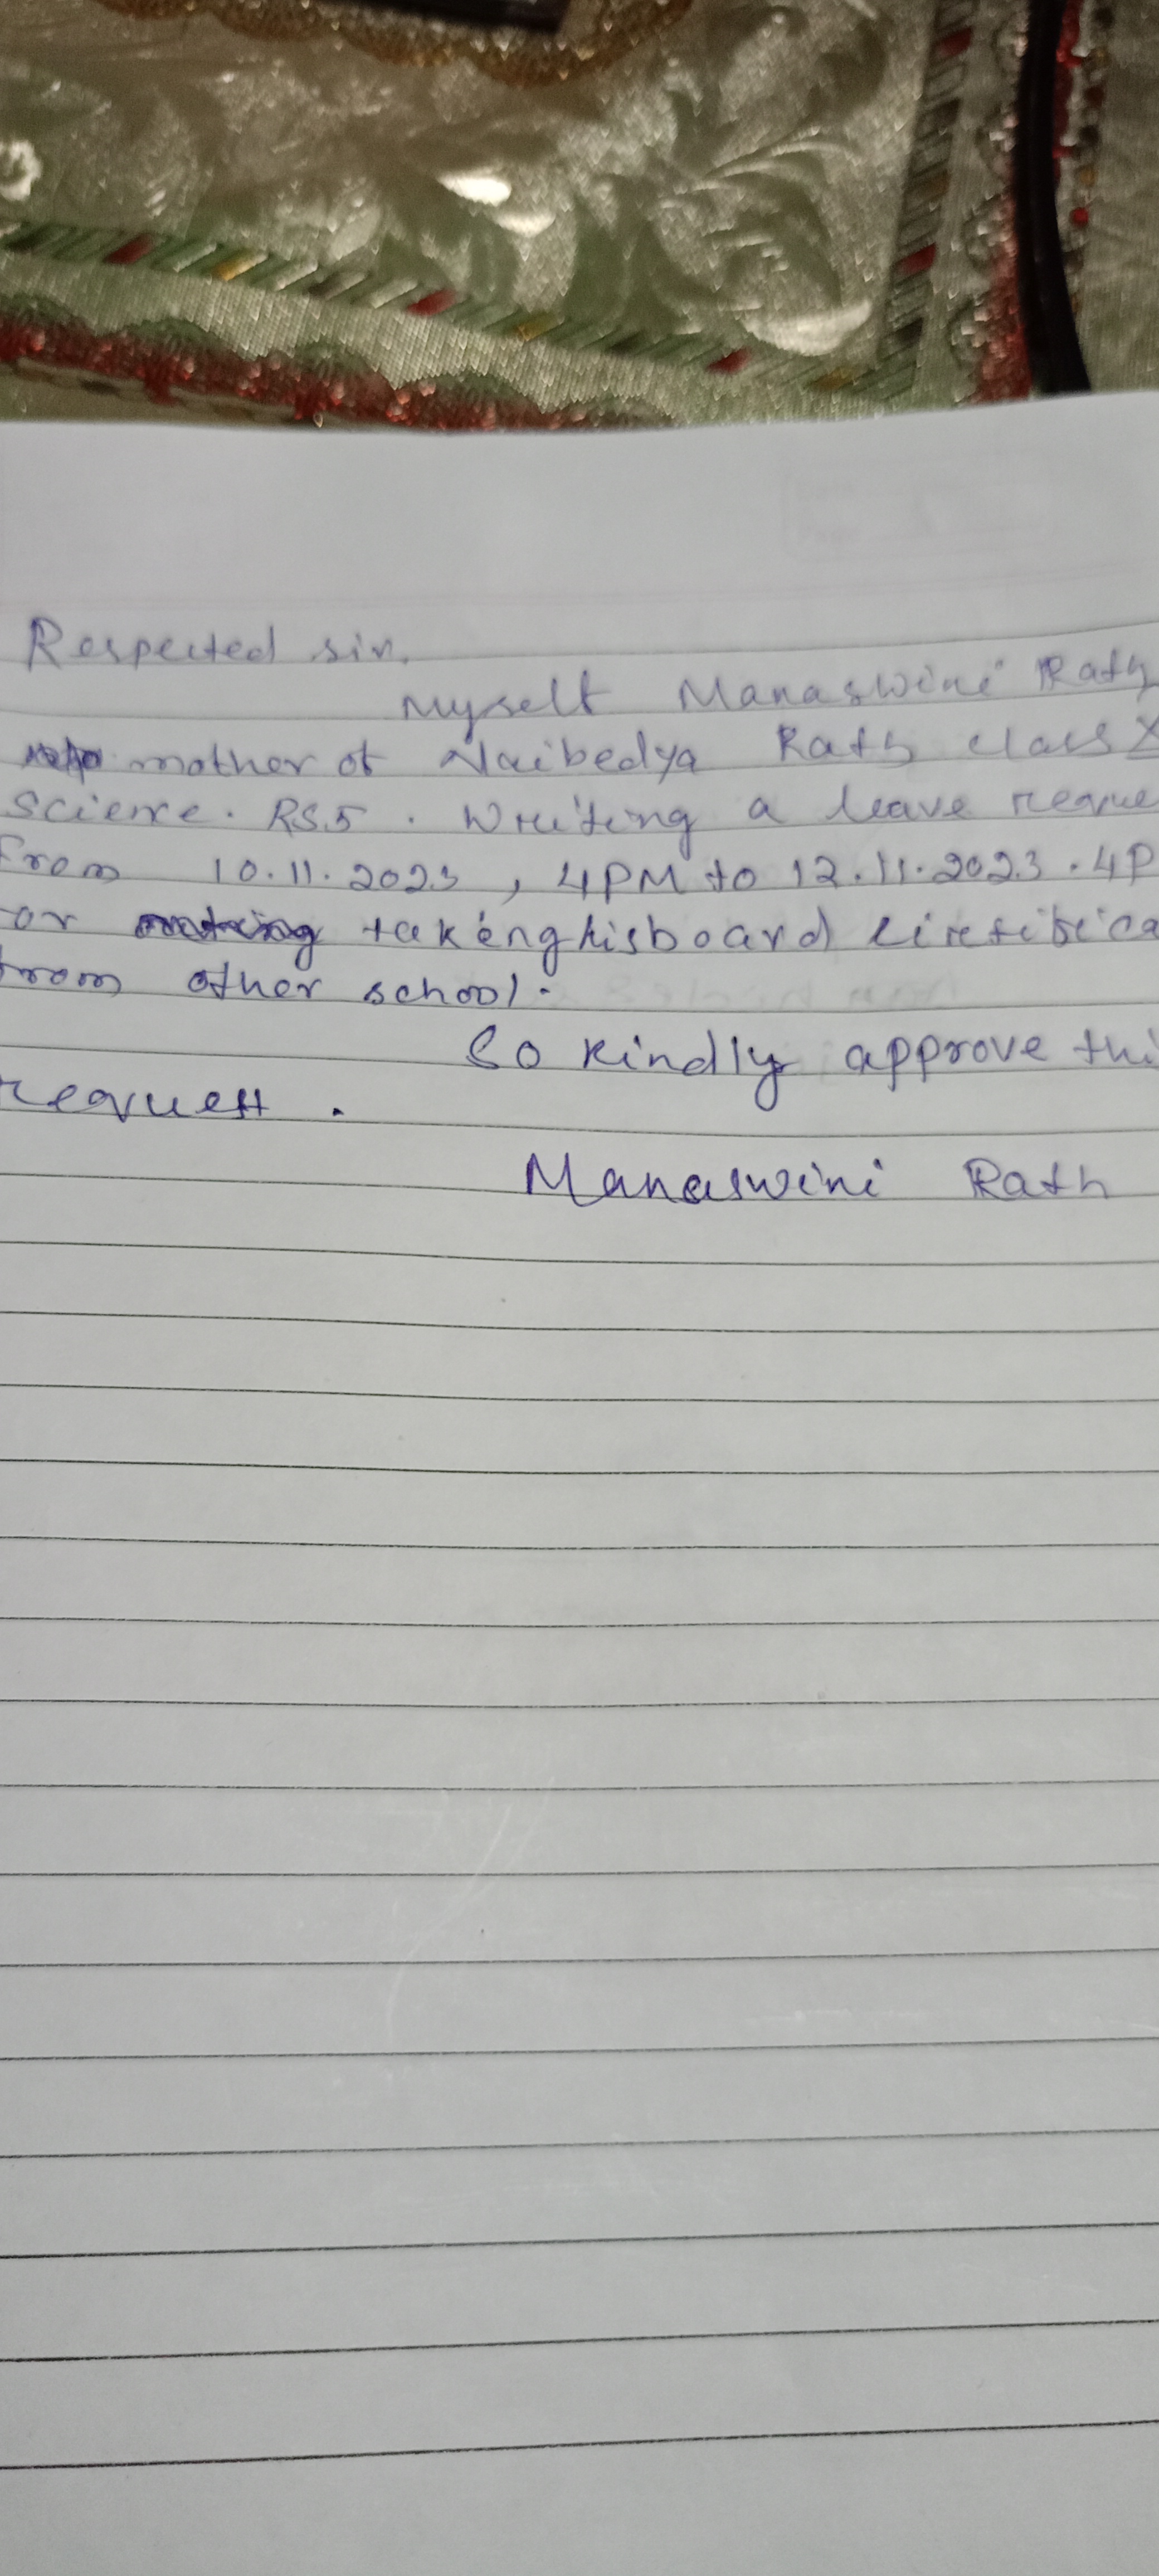 Respected sir,
Myself Manaswini Rath
mother of Naibedya Rath class X
Science. RS5. Writing a leave reque
From 10.11.2023, 4PM to 12.11.2023. 4P
or taking his board cirtifica
from other school.
So kindly approve thi
request.
Manaswini Rath